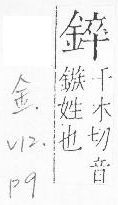 錊
千木切音
鏃姓也
金.
V12.
P9